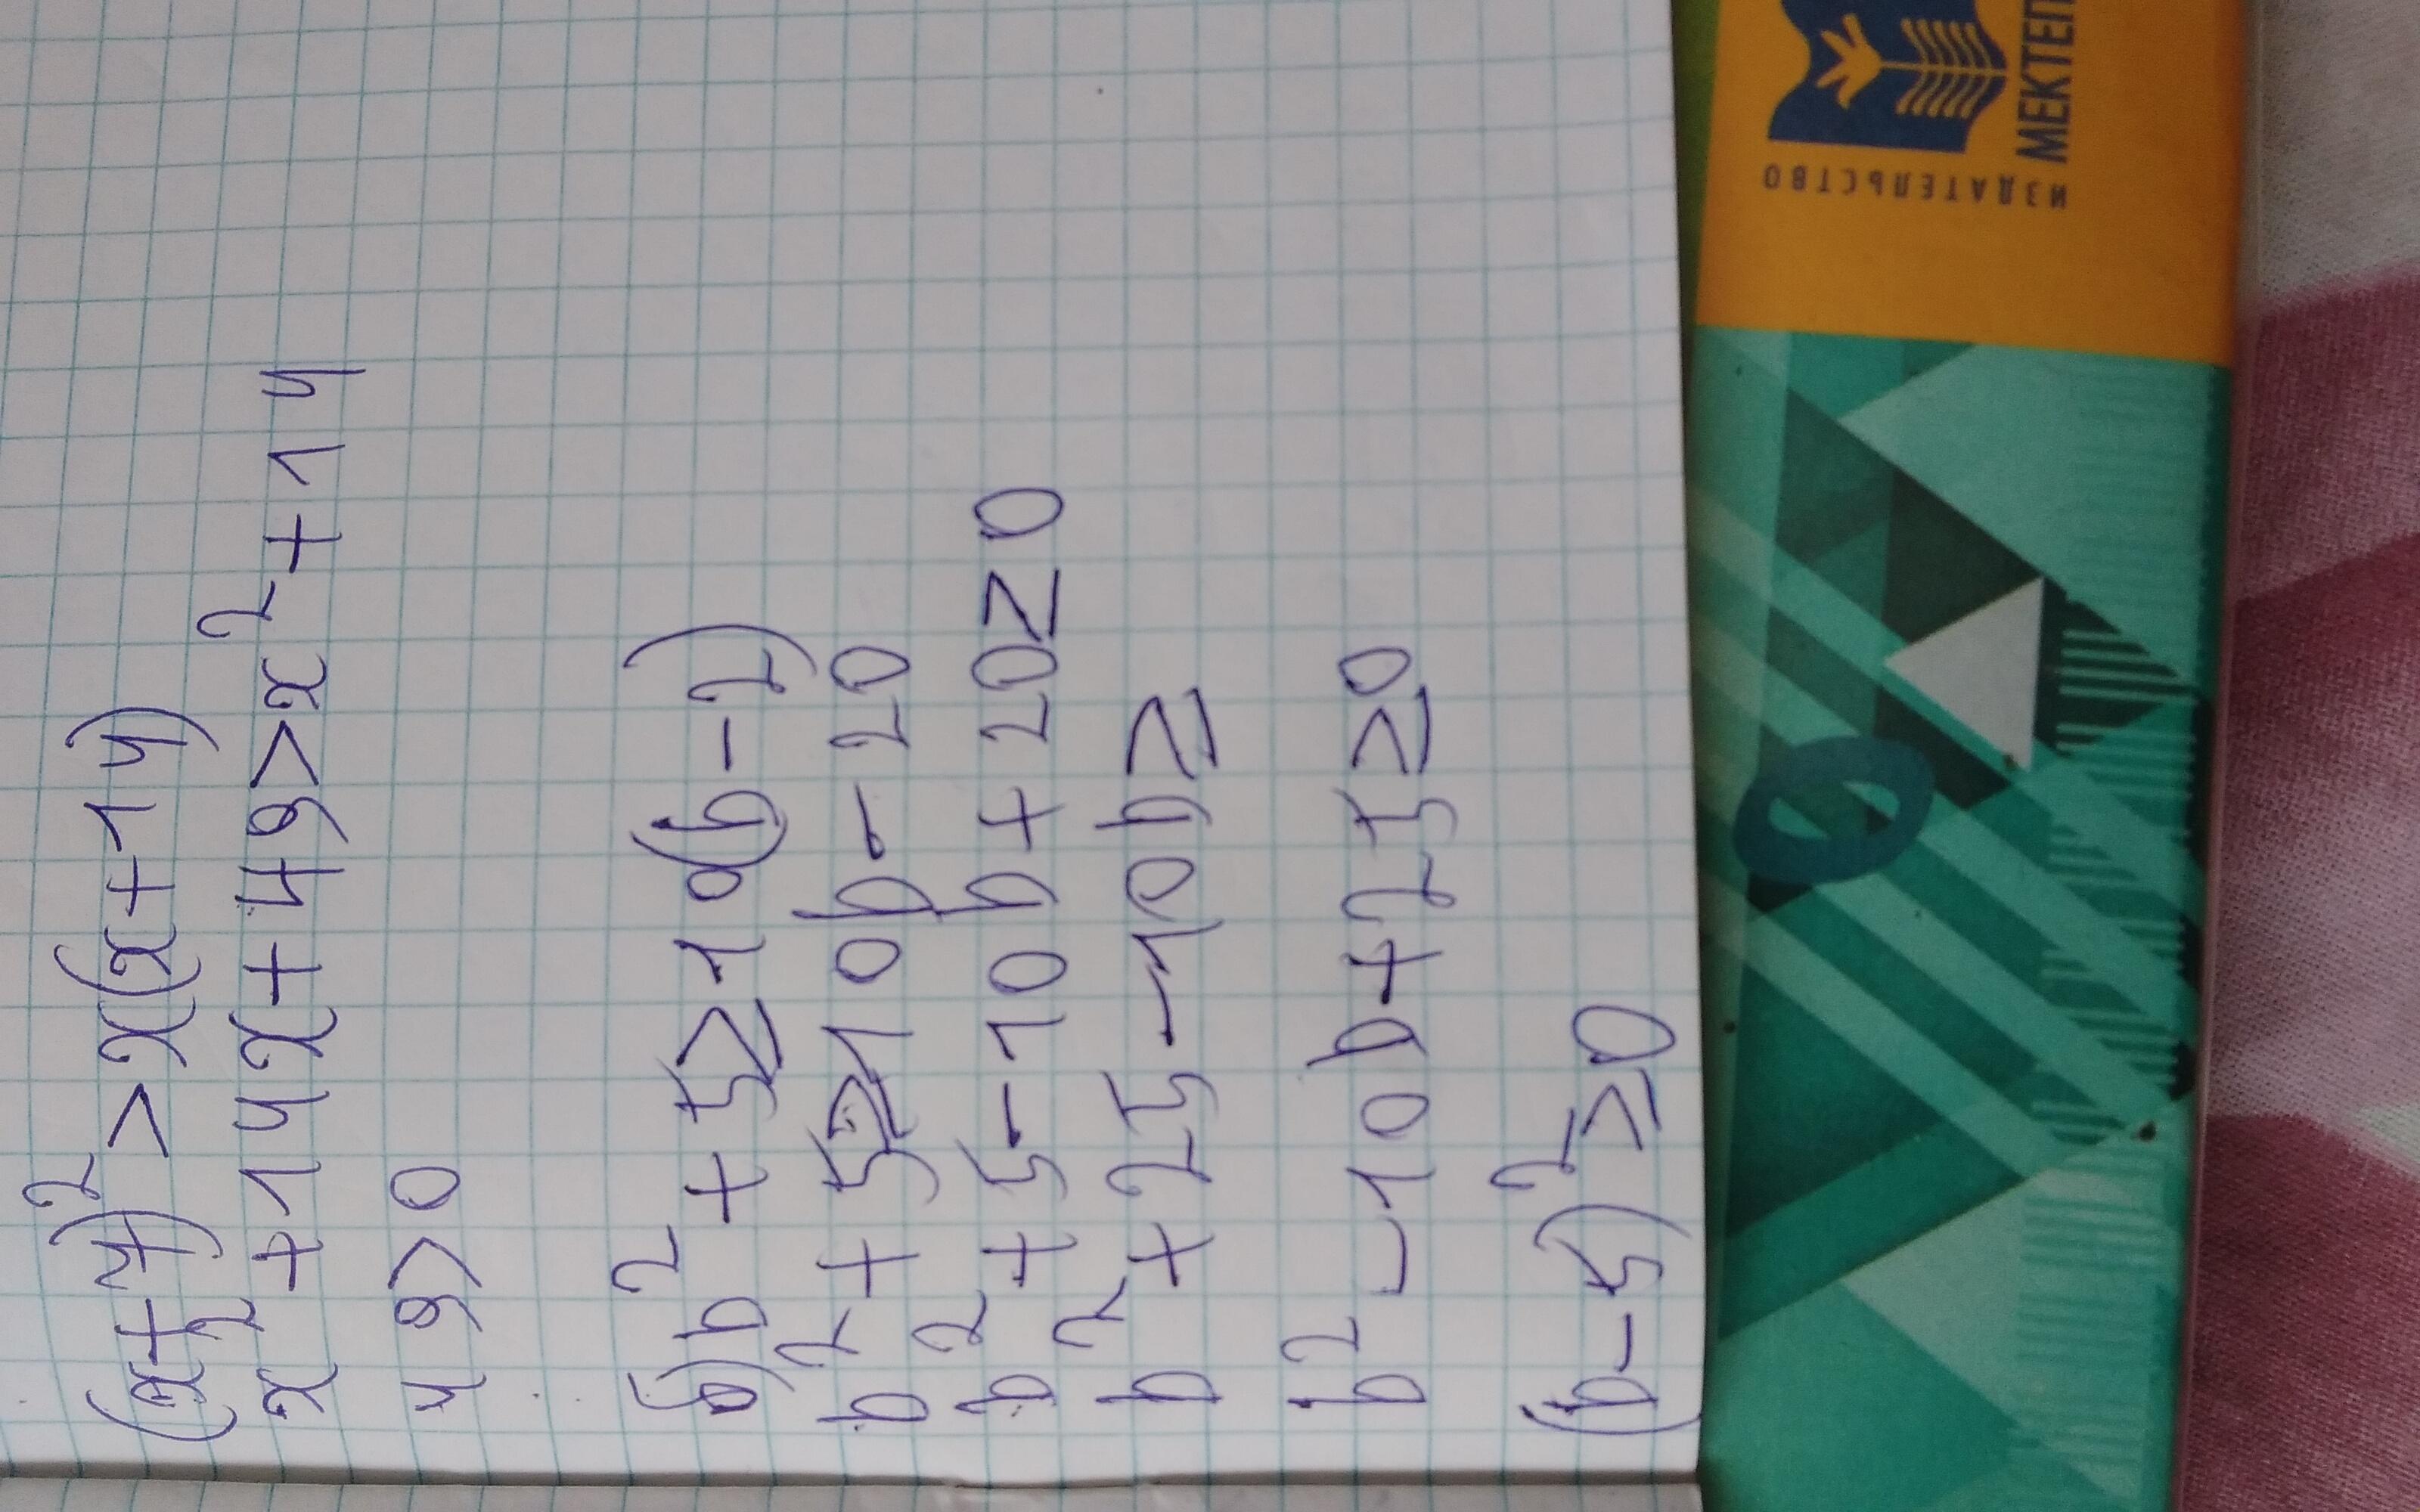 (x+7)²>x(x+14)
x²+14x+49>x²+14
49>0
б)b²+5≥10(b-2)
b²+5≥10b-20
b²+5-10b+20≥0
b²+25-10b≥
b²-10b+25≥0
(b-5)²≥0
ИЗДАТЕЛЬСТВО
МЕКТЕП